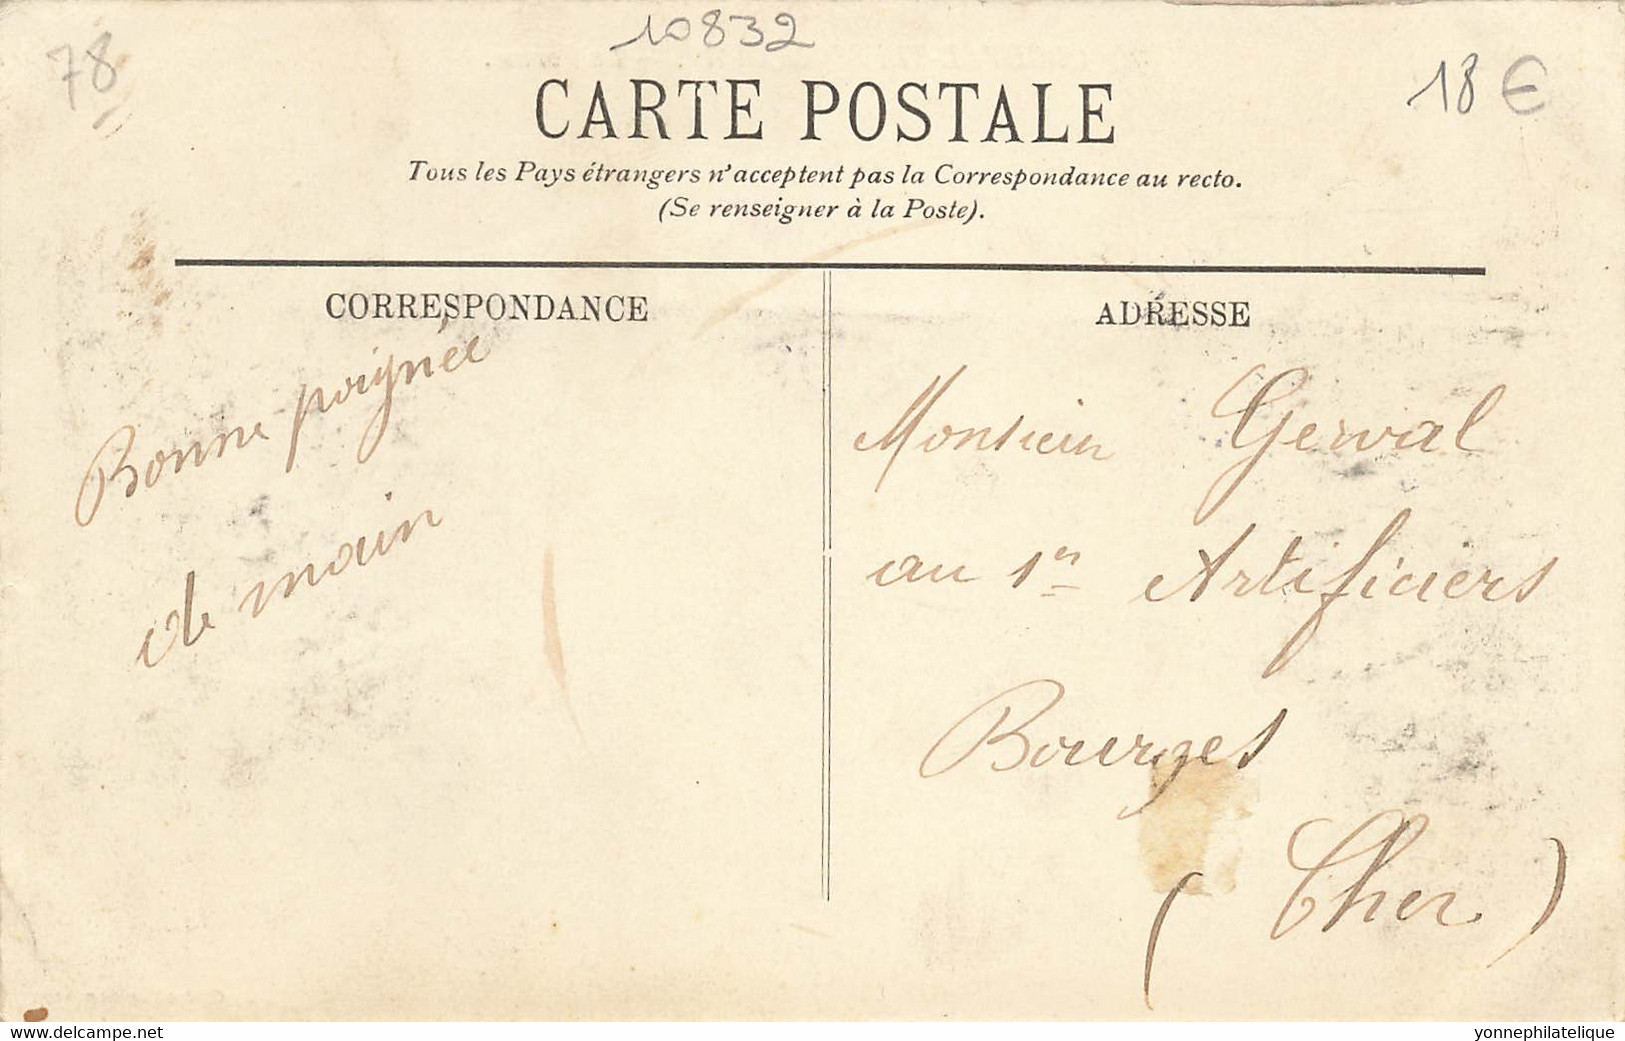 78
10832
18 €
CARTE POSTALE
Tous les Pays étrangers n'acceptent pas la Correspondance au recto.
(Se renseigner à la Poste).
CORRESPONDANCE
Bonne poignée
de main
ADRESSE
Monsieur Gerval
au 1er Artificiers
Bourges
(Cher)
delcampe.net
yonnephilatelique